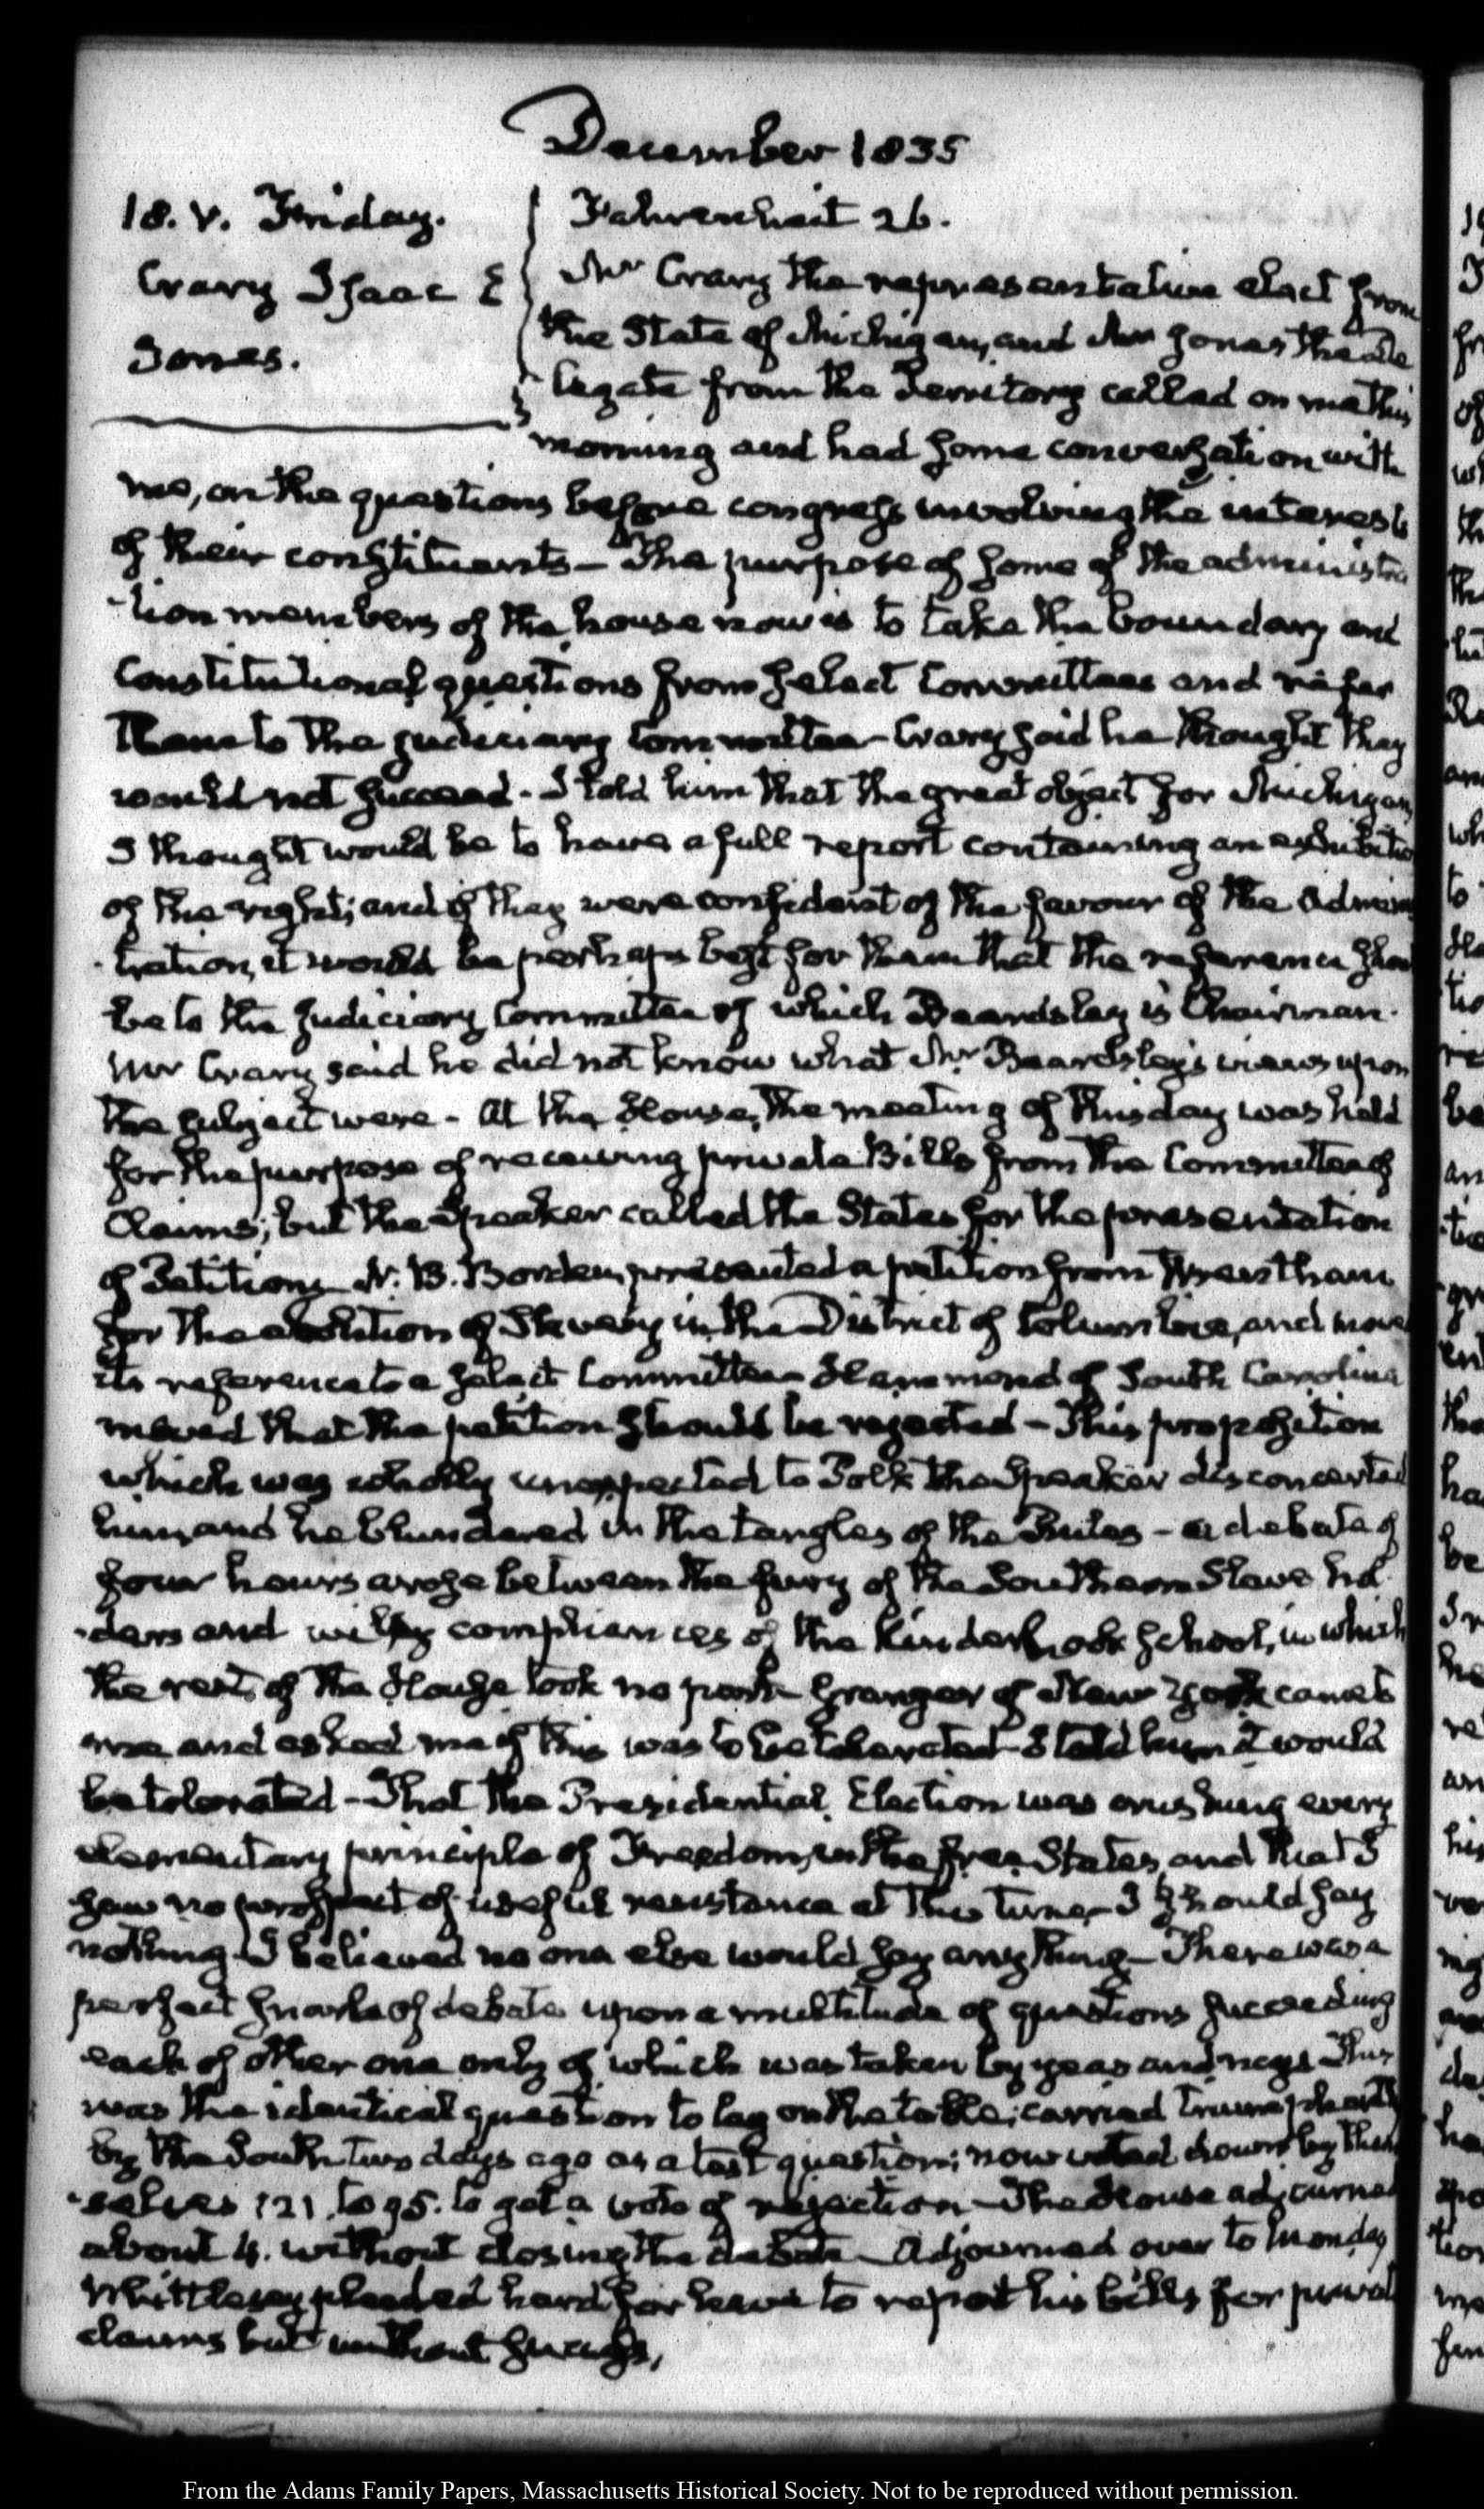 December 1835
18. V. Friday.
Crary Isaac E
Jones.
Fahrenheit 26.
Mr Crary the representative elect from
the State of Michigan, and Mr Jones the de
legate from the Territory called on me this
morning and had some conversation with
me, on the questions before congress involving the interests
of their constituents— The purpose of some of the administra
-tion members of the house now is to take the boundary and
Constitutional questions from select Committees and refer
them to the Judiciary Committee— Crary said he thought they
would not succeed- I told him that the great object for Michigan
I thought would be to have a full report containing an exhibition
of the right; and if they were confident of the favour of the Adminis
-tration, it would be perhaps best for them that the reference should
be to the Judiciary Committee of which Beardsley is Chairman.
Mr Crary said he did not know what Mr Beardsley's views upon
the subject were- At the House, the meeting of this day was held
for the purpose of receiving private Bills from the Committee of
Claims; but the Speaker called the States for the presentation
of Petitions— N. B. Borden, presented a petition from Wrentham
for the abolition of Slavery in the District of Columbia, and moved
its reference to a select Committee— Hammond of South Carolina
moved that the petition should be rejected— This proposition
which was wholly unexpected to Polk the Speaker disconcerted
him, and he blundered in the tangles of the Rules— a debate of
four hours arose between the fury of the Southern Slave hol
-ders and wily compliances of the Kinderhook school, in which
the rest of the House took no part— Granger of New York came to
me and asked me if this was to be tolerated— I told him it would
be tolerated— That the Presidential Election was crushing every
elementary principle of Freedom, in the free States, and that I
saw no prospect of useful resistance at this time— I should say
nothing— I believed no one else would say any thing— There was a
perfect snarle of debate upon a multitude of questions succeeding
each of other one only of which was taken by yeas and nays— This
was the identical question to lay on the table; carried triumphantly
by the South two days ago as a test question; now voted down by them
-selves 121. to 95. to get a vote of rejection— The House adjourned
about 4. without closing the debate— Adjourned over to Monday
Whittlesey pleaded hard for leave to report his bills for private
claims but without success,
From the Adams Family Papers, Massachusetts Historical Society. Not to be reproduced without permission.